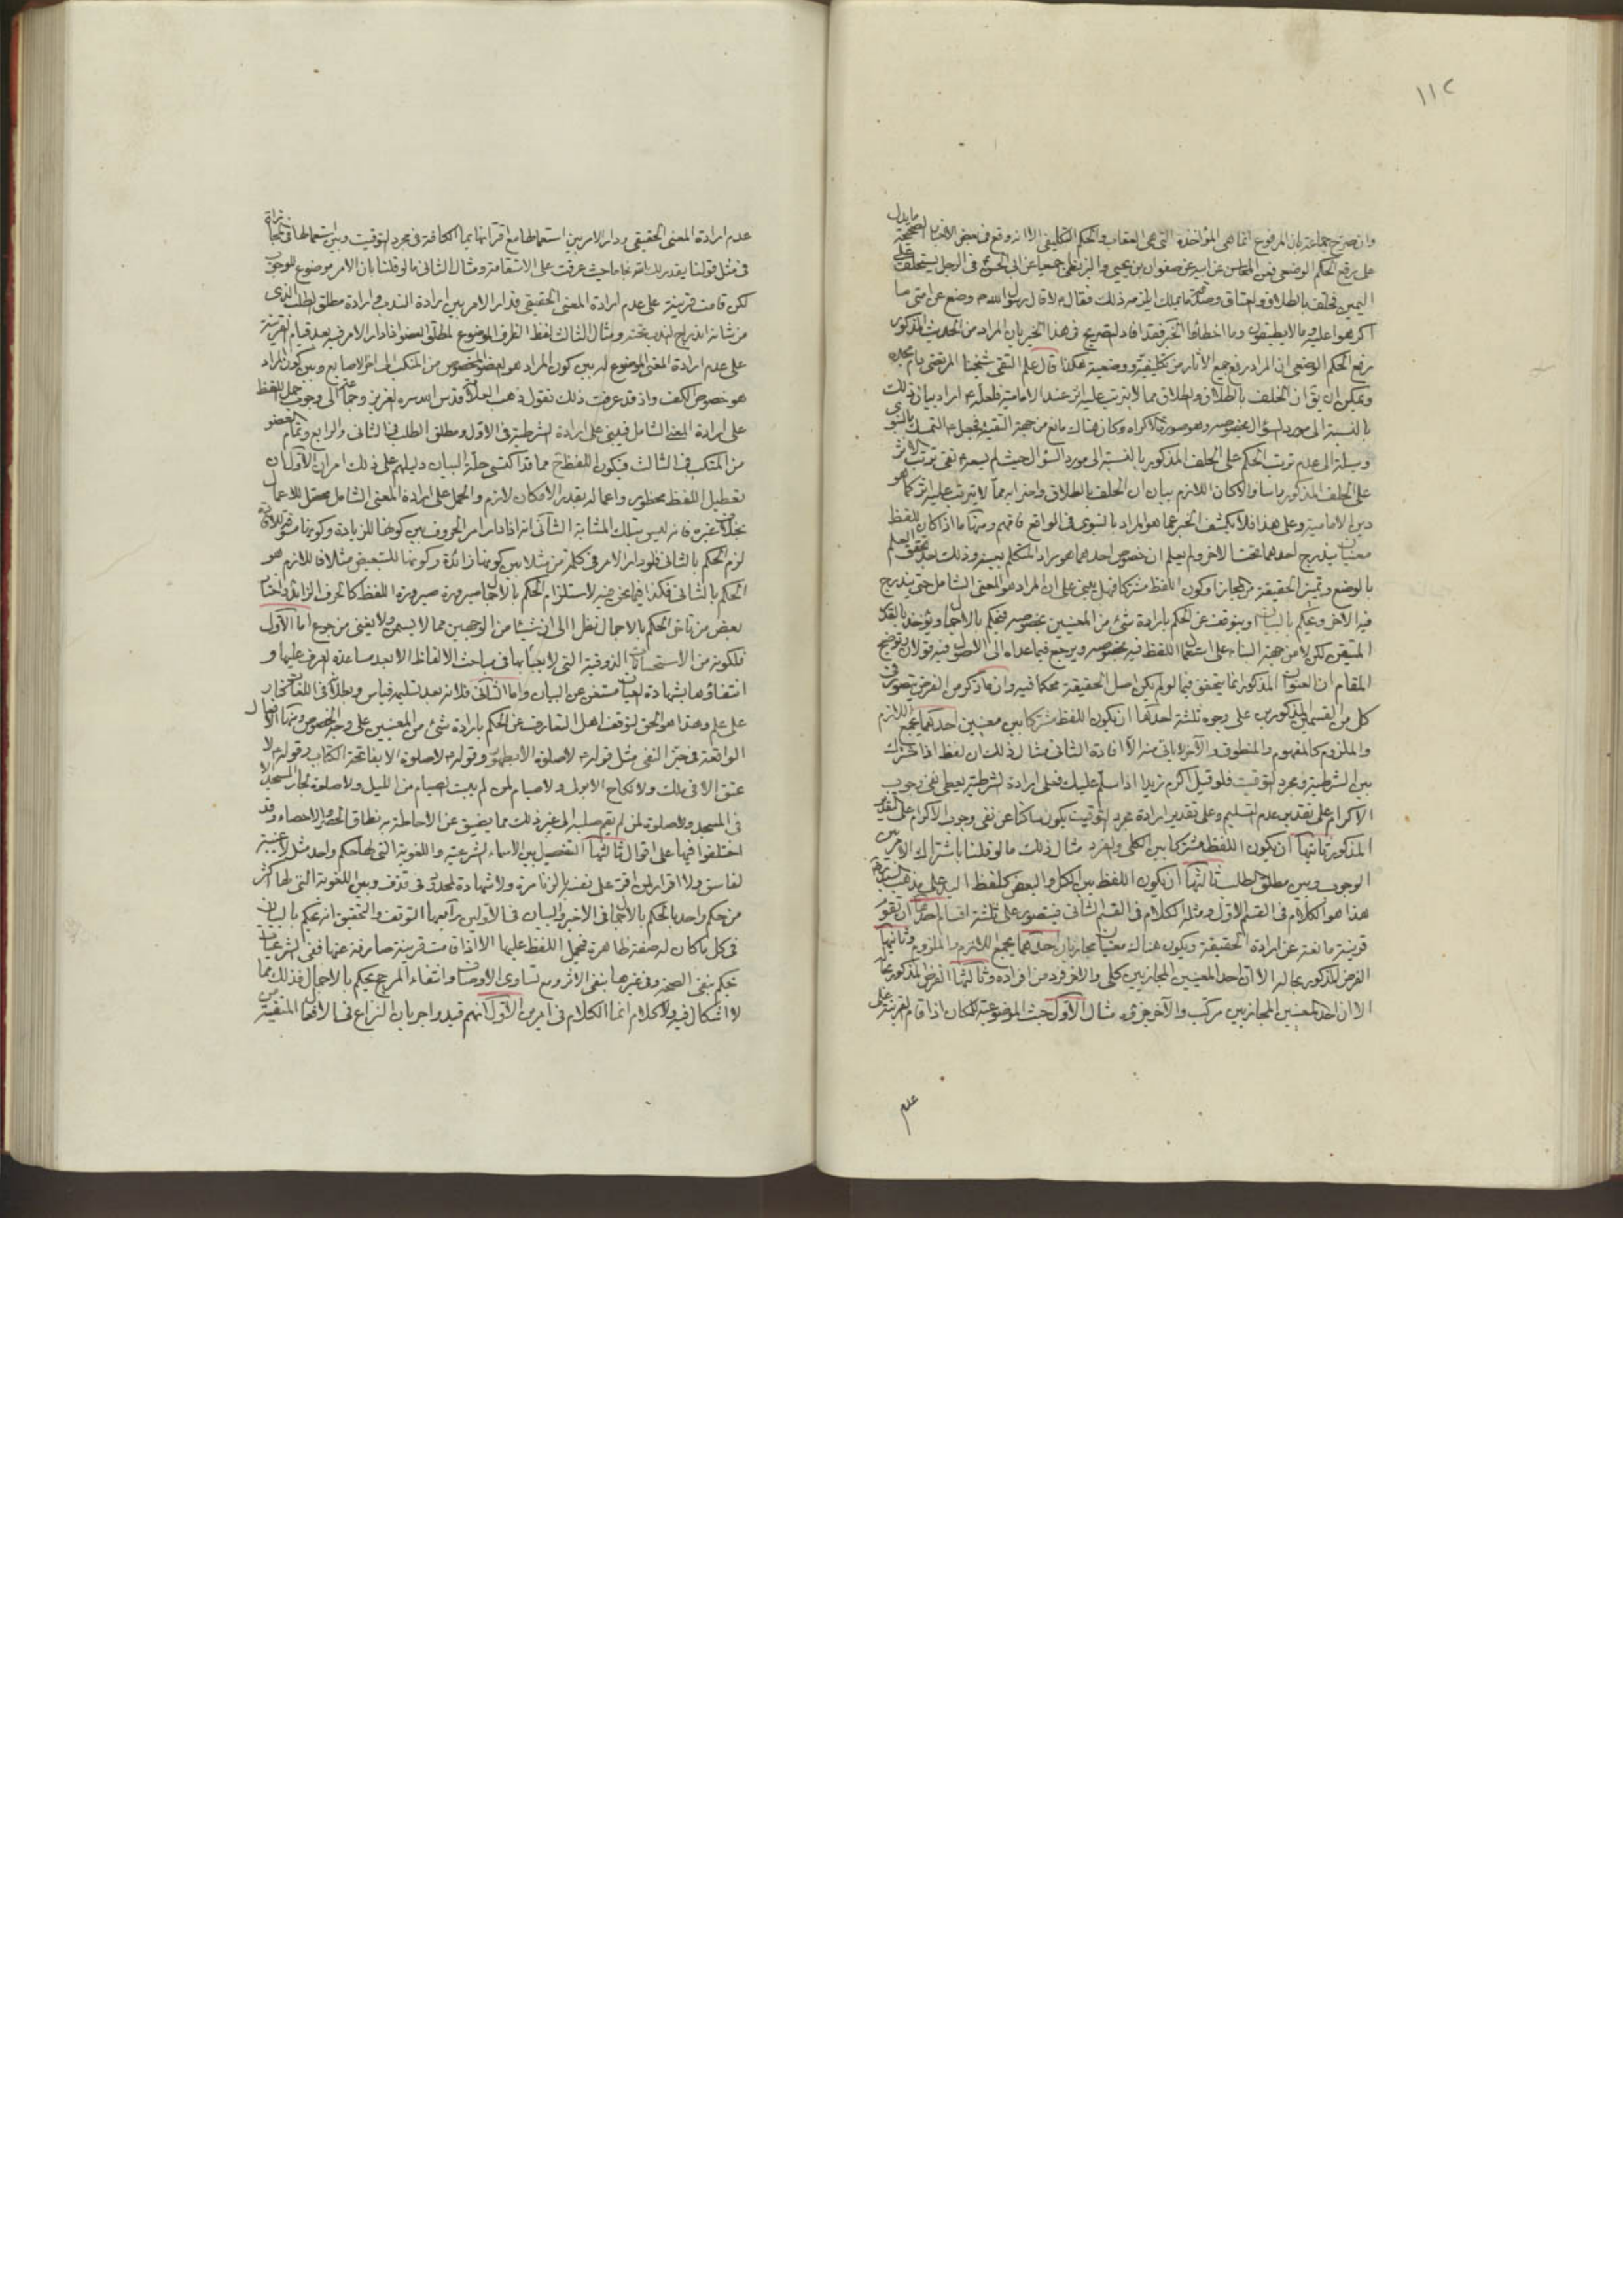 ١١٢
وان صرح جماعة بان المرفوع انما هى المؤاخذة التى هى العقاب والحكم التكليفى الا انه وقع فى بعض الاخبار الصحيحة ما يدل
على رفع الحكم الوضعى فعن المحاسن عن ابيه عن صفوان بن يحيى والبزنطى جميعا عن ابى الحسن فى الرجل يستحلف على
اليمين فحلف بالطلاق والعتاق وصدقة ما يملك ايلزمه ذلك فقال لا قال رسول الله وضع عن امتى ما
اكرهوا عليه وما لا يطيقون وما اخطاوا الخبر فقد افاد التصريح فى هذا الخبر بان المراد من الحديث المذكور
رفع الحكم الوضعى ان المراد رفع جميع الآثار من تكليفية ووضعية هكذا قال علم التقى شيخنا المرتضى دام مجده
ويمكن ان يق ان الحلف بالطلاق والطلاق مما لا يترتب عليه اثر عند الامامية فلعله اراد بيان ذلك
بالنسبة الى مورد السؤال بخصوصه وهو صورة الاكراه وكان هناك مانع من جهة التقية فجعل التمسك بالنبوى
وسيلة الى عدم ترتب الحكم على الحلف المذكور بالنسبة الى مورد السؤال حيث لم يسعه نفى ترتب الاثر
على الحلف المذكور راسا والا كان اللازم بيان ان الحلف بالطلاق واضرابه مما لا يترتب عليه اثر كما هو
دين الامامية وعلى هذا فلا يكشف الخبر عما هو المراد بالنبوى فى الواقع فافهم ومنها ما اذا كان للفظ
معنيان يندرج احدهما تحت الآخر ولم يعلم ان خصوص احدهما هو مراد المتكلم بعينه وذلك بعد تحقق العلم
بالوضع وتميز الحقيقة من المجاز او كون اللفظ مشتركا فهل يبنى على ان المراد هو المعنى الشامل حتى يندرج
فيه الآخر ويحكم بالبيان او يتوقف عن الحكم بارادة شئ من المعنيين بخصوصه فيحكم بالاجمال ويؤخذ بالقدر
المتيقن لكن لا من جهة البناء على استعمال اللفظ فيه بخصوصه ويرجع فيما عداه الى الاصول فيه قولان توضيح
المقام ان العنوان المذكور انما يتحقق فيما لو لم يكن اصل الحقيقة محكما فيه وان ما ذكر من الفرض يتصور فى
كل من القسمين المذكورين على وجوه ثلثة احدها ان يكون اللفظ مشتركا بين معنيين احدهما يجمع اللازم
والملزوم كالمفهوم والمنطوق والآخر لا ياتى منه الا افادة الثانى مثال ذلك ان لفظ اذا مشترك
بين الشرطية ومجرد التوقيت فلو قيل اكرم زيدا اذا سلم عليك فعلى ارادة الشرطية يعطى نفى وجوب
الاكرام على تقدير عدم التسليم وعلى تقدير ارادة مجرد التوقيت يكون ساكتا عن نفى وجوب الاكرام على التقدير
المذكور ثانيها ان يكون اللفظ مشتركا بين الكلى والفرد مثال ذلك ما لو قلنا باشتراك الامر بين
الوجوب وبين مطلق الطلب ثالثها ان يكون اللفظ بين الكل والبعض كلفظ اليد على مذهب
هذا هو الكلام فى القسم الاول ومثله الكلام فى القسم الثانى فيتصور على ثلثة اقسام احدها ان تقوم
قرينة مانعة عن ارادة الحقيقة ويكون هناك معنيان مجازيان احدهما يجمع اللازم والملزوم وثانيها
الفرض المذكور بحاله الا ان احد المعنيين المجازيين كلى والآخر فرد من افراده وثالثها الفرض المذكور بحاله
الا ان احد المعنيين المجازيين مركب والآخر جزؤه مثال الاول حيث الموضوعة للمكان اذا قام القرينة على
عدم
عدم ارادة المعنى الحقيقى ودار الامر بين استعمالها مع اقترانها بما الكافة فى مجرد التوقيت وبين استعمالها فى المجازاة
فى مثل قولنا يقدر لك الله نجاحا حيث عرفت على الاستقامة ومثال الثانى ما لو قلنا بان الامر موضوع للوجوب
لكن قامت قرينة على عدم ارادة المعنى الحقيقى فدار الامر بين ارادة الندب وارادة مطلق الطلب الذى
من شانه اندراج الندب تحته ومثال الثالث لفظ الظرف الموضوع لمطلق العضو اذا دار الامر فيه بعد قيام القرينة
على عدم ارادة المعنى الموضوع له بين كون المراد هو العضو المخصوص من المنكب الى اخر الاصابع وبين كون المراد
هو خصوص الكف واذ قد عرفت ذلك نقول ذهب العلامة قدس الله سره العزيز وجماعة الى وجوب حمل اللفظ
على ارادة المعنى الشامل فيبنى على ارادة الشرطية فى الاول ومطلق الطلب فى الثانى والرابع وتمام العضو
من المنكب فى الثالث فيكون اللفظ ح مما قد اكتسى حلة البيان دليلهم على ذلك امران الاول ان
تعطيل اللفظ محظور واعماله بقدر الامكان لازم والحمل على ارادة المعنى الشامل محصل للاعمال
بخلاف غيره فانه ليس بتلك المثابة الثانى انه اذا دار امر الحروف بين كونها للزيادة وكونها مسوقة للافادة
لزم الحكم بالثانى فلو دار الامر فى كلمة من مثلا بين كونها زائدة وكونها للتبعيض مثلا فاللازم هو
الحكم بالثانى فكذا فيما نحن فيه لاستلزام الحكم بالاجمال صيرورة صيرورة اللفظ كالحرف الزائد واختار
بعض من تاخر الحكم بالاجمال نظرا الى ان شيئا من الوجهين مما لا يسمن ولا يغنى من جوع اما الاول
فلكونه من الاستحسانات الذوقية التى لا يعبا بها فى مباحث الالفاظ الا بعد مساعدة العرف عليها و
انتفاؤها بشهادة العيان مستغن عن البيان واما الثانى فلانه بعد تسليمه قياس وبطلانه فى اللغات كنار
على علم وهذا هو الحق لتوقف اهل التعارف عن الحكم بارادة شئ من المعنيين على وجه الخصوص ومنها الافعال
الواقعة فى حيز النفى مثل قوله لا صلوة الا بطهور وقوله لا صلوة الا بفاتحة الكتاب وقوله لا
عتق الا فى ملك ولا نكاح الا بولى ولا صيام لمن لم يبيت الصيام من الليل ولا صلوة لجار المسجد الا
فى المسجد ولا صلوة لمن لم يقم صلبه الى غير ذلك مما يضيق عن الاحاطة به نطاق الحصر والاحصاء وقد
اختلفوا فيها على اقوال ثالثها التفصيل بين الاسماء الشرعية واللغوية التى لها حكم واحد مثل لا غيبة
لفاسق ولا اقرار لمن اقر على نفسه بالزنا مرة ولا شهادة لمحدود فى قذف وبين اللغوية التى لها اكثر
من حكم واحد بالحكم بالاجمال فى الاخير والبيان فى الاولين رابعها التوقف والتحقيق انه يحكم بالبيان
فى كل ما كان له صفة ظاهرة فيحمل اللفظ عليها الا اذا قامت قرينة صارفة عنها ففى الشرعيات
يحكم بنفى الصحة وفى غيرها بنفى الاثر ومع تساوى الاوصاف وانتفاء المرجح يحكم بالاجمال فذلك مما
لا اشكال فيه ولا كلام انما الكلام فى امرين الاول انهم قيدوا جريان النزاع فى الافعال المنفية من